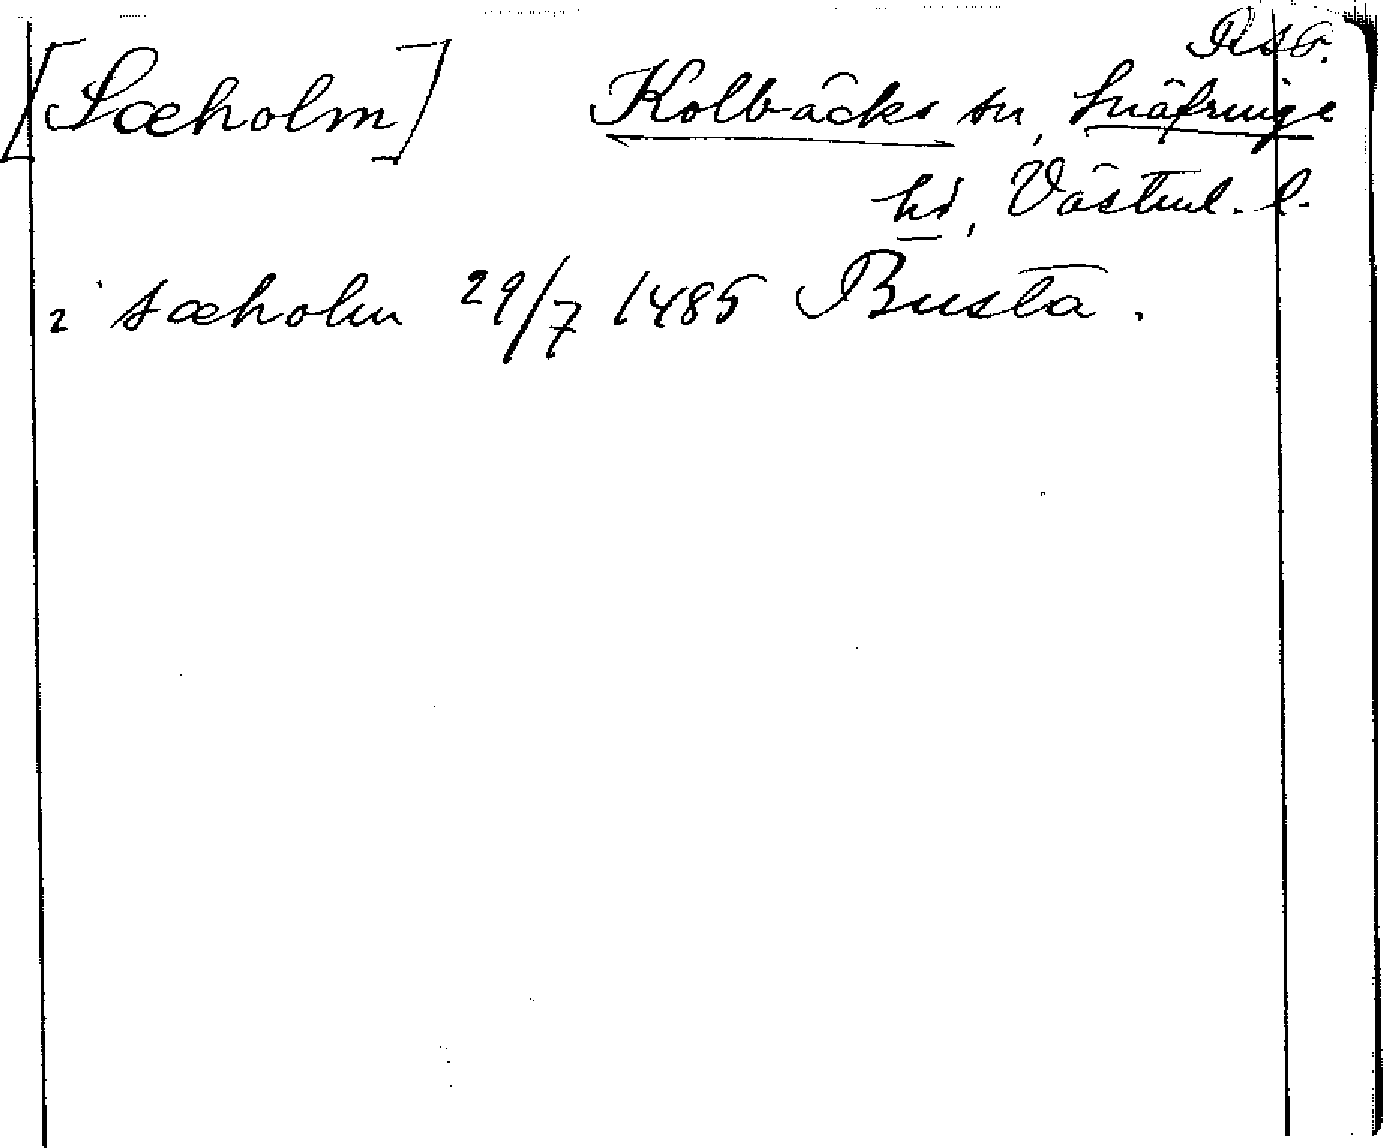 Rsb.
[Sæholm] Kolbäcks sn, Snäfringe
hd, Västml. l.
i sæholm 29/7 1485 Busta.